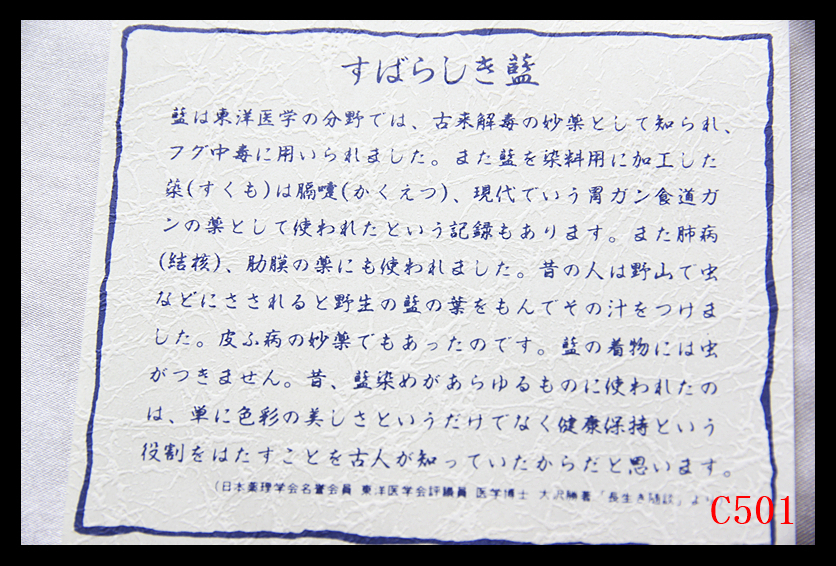 すばらしき藍
藍は東洋医学の分野では、古来解毒の妙薬として知られ、
フグ中毒に用いられました。また藍を染料用に加工した
蒅(すくも)は膈噎(かくえつ)、現代でいう胃ガン食道ガ
ンの薬として使われたという記録もあります。また肺病
(結核)、肋膜の薬にも使われました。昔の人は野山で虫
などにさされると野生の藍の葉をもんでその汁をつけま
した。皮ふ病の妙薬でもあったのです。藍の着物には虫
がつきません。昔、藍染めがあらゆるものに使われたの
は、単に色彩の美しさというだけでなく健康保持という
役割をはたすことを古人が知っていたからだと思います。
(日本薬理学会名誉会員 東洋医学会評議員 医学博士 大沢勝著「長生き随談」より
C501